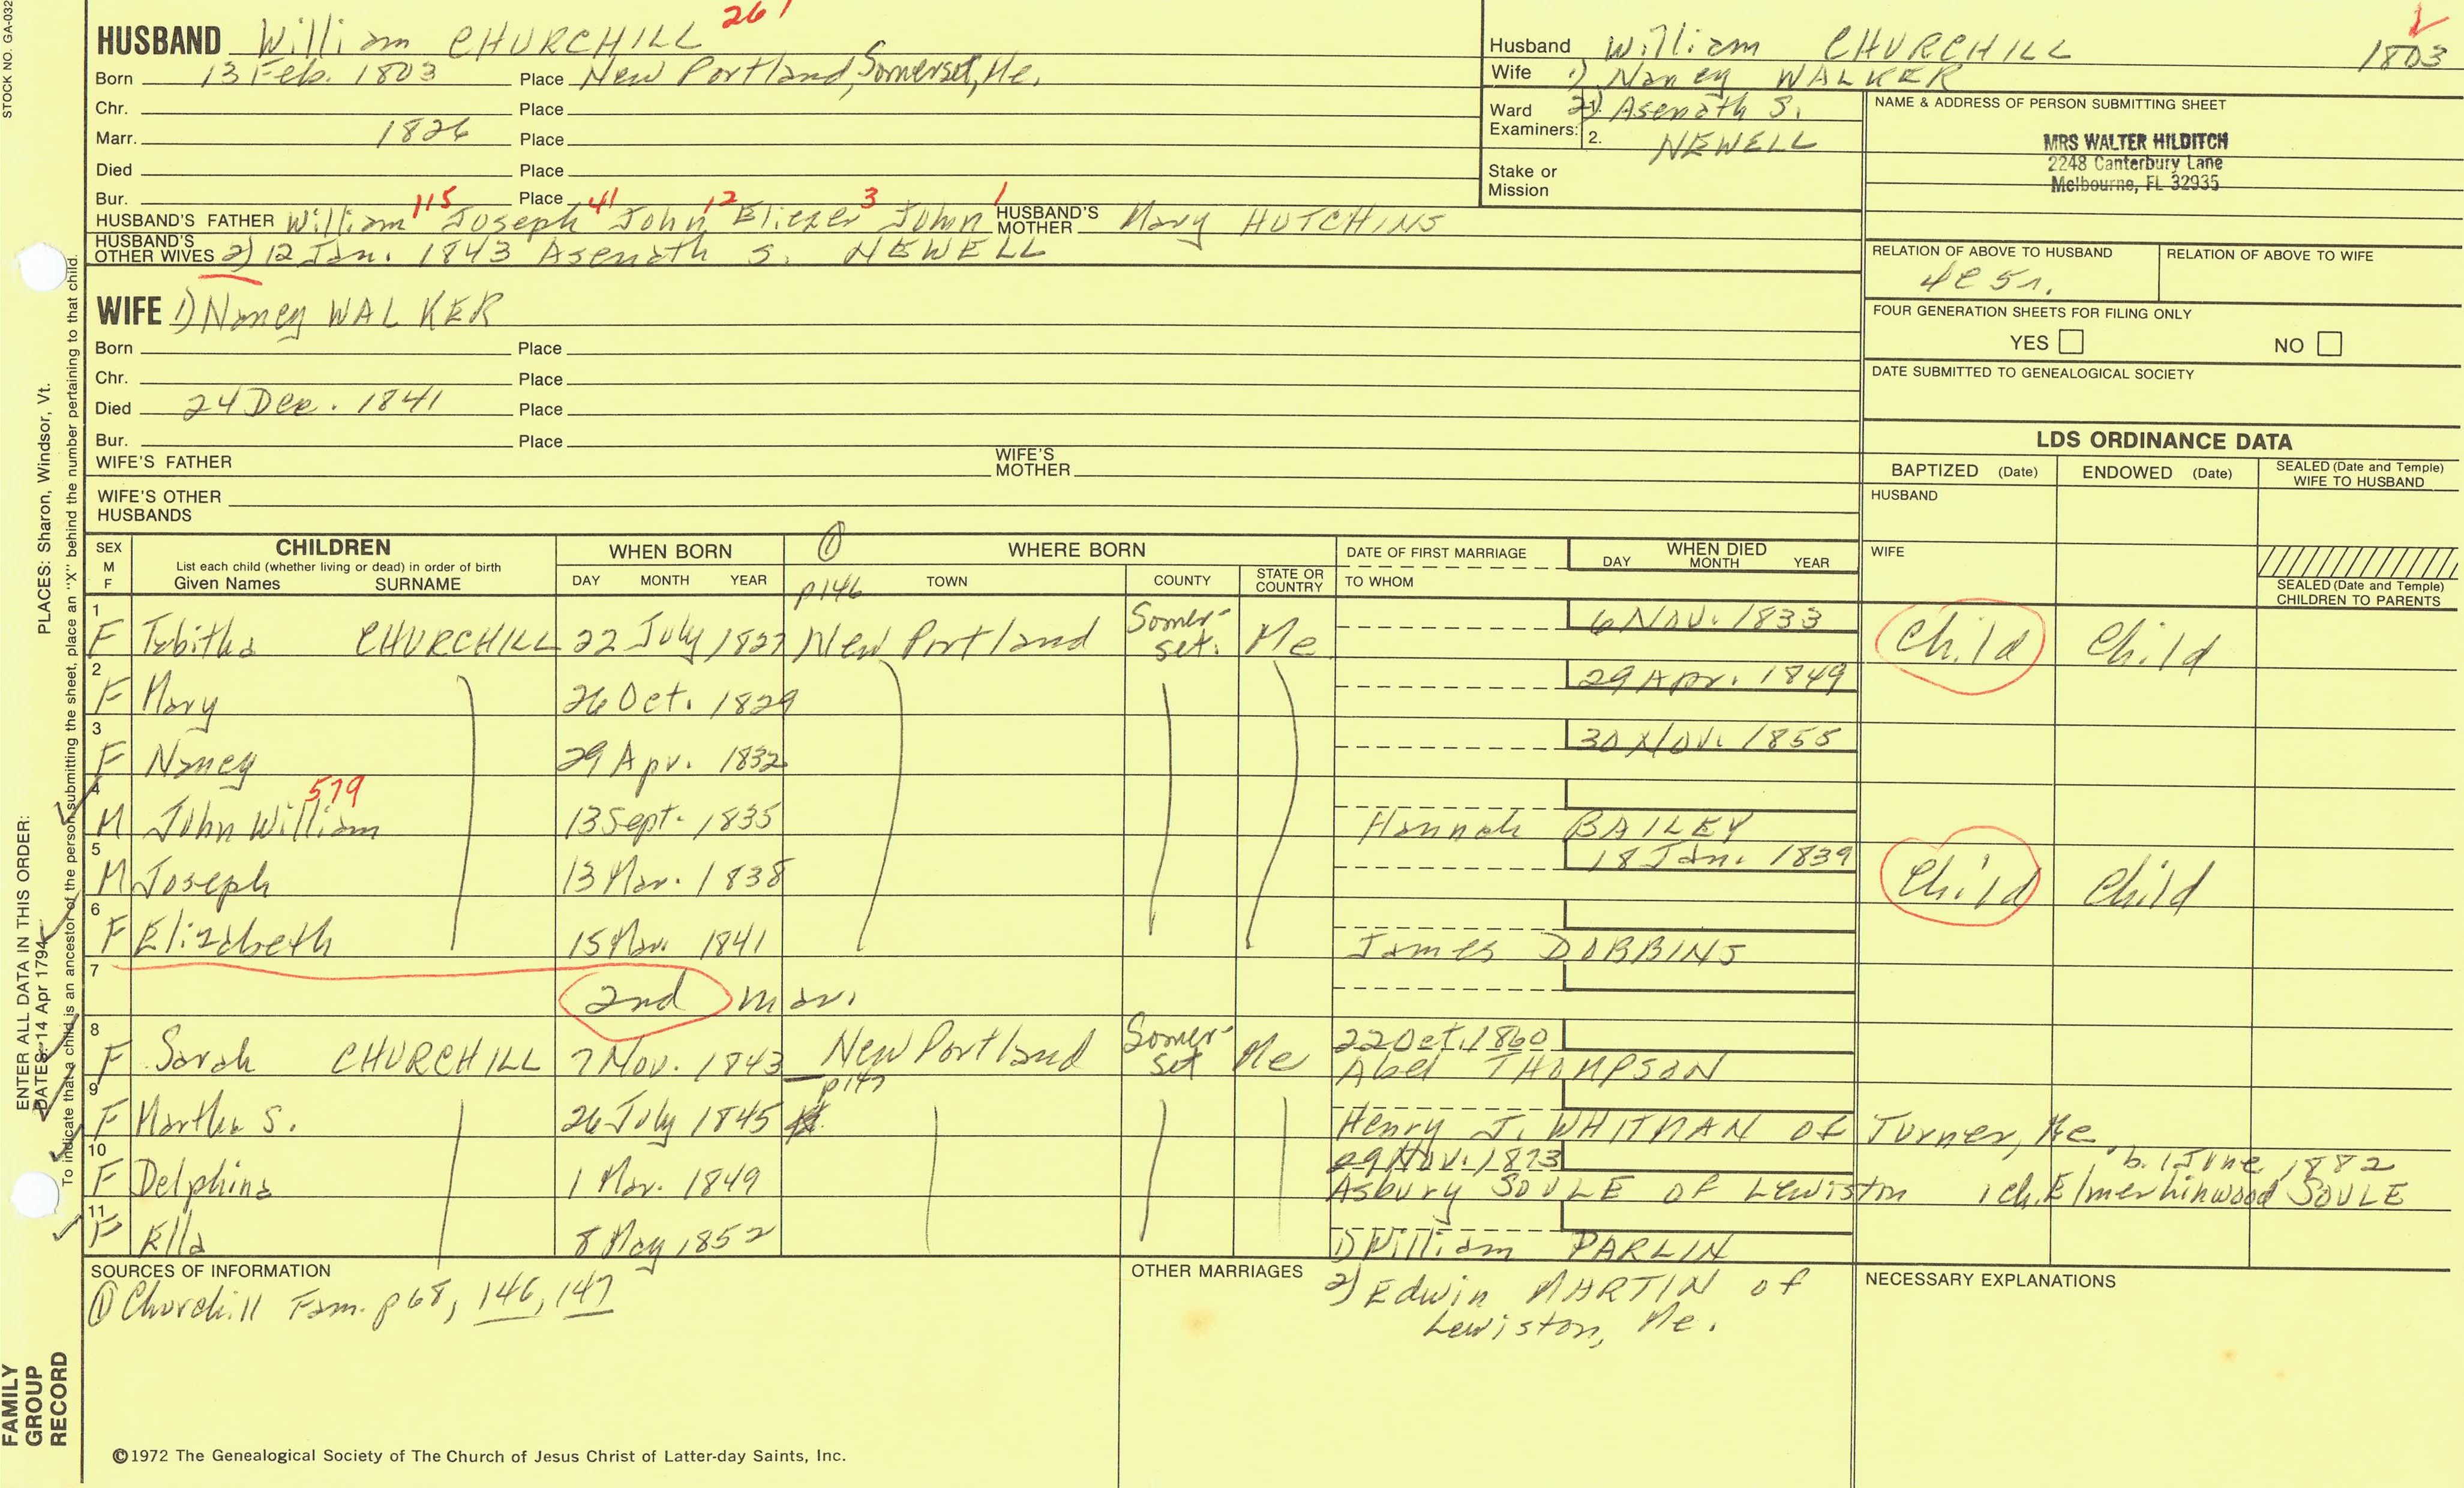 STOCK NO. GA-032
HUSBAND William CHURCHILL 261
Born 13 Feb. 1803 Place New Portland, Somerset, Me.
Chr. Place
Marr. 1826 Place
Died Place
Bur. Place
HUSBAND'S FATHER William 115 Joseph 41 John 12 Eliezer 3 John 1 HUSBAND'S MOTHER Mary HUTCHINS
HUSBAND'S OTHER WIVES 2) 12 Jan. 1843 Asenath S. NEWELL
Husband William CHURCHILL 1803
Wife 1) Nancy WALKER
Ward 2) Asenath S.
Examiners: 2. NEWELL
Stake or Mission
NAME & ADDRESS OF PERSON SUBMITTING SHEET
MRS WALTER HILDITCH
2248 Canterbury Lane
Melbourne, FL 32935
RELATION OF ABOVE TO HUSBAND RELATION OF ABOVE TO WIFE
4C 5r.
FOUR GENERATION SHEETS FOR FILING ONLY
YES NO
DATE SUBMITTED TO GENEALOGICAL SOCIETY
WIFE 1) Nancy WALKER
Born Place
Chr. Place
Died 24 Dec. 1841 Place
Bur. Place
WIFE'S FATHER WIFE'S MOTHER
WIFE'S OTHER HUSBANDS
LDS ORDINANCE DATA
BAPTIZED (Date) ENDOWED (Date) SEALED (Date and Temple) WIFE TO HUSBAND
HUSBAND
WIFE
SEALED (Date and Temple) CHILDREN TO PARENTS
SEX M F
CHILDREN
List each child (whether living or dead) in order of birth
Given Names SURNAME
WHEN BORN
DAY MONTH YEAR
① WHERE BORN
p146 TOWN COUNTY STATE OR COUNTRY
DATE OF FIRST MARRIAGE
TO WHOM
WHEN DIED
DAY MONTH YEAR
1 F Tabitha CHURCHILL 22 July 1827 New Portland Somer-set. Me 6 Nov. 1833 Child Child
2 F Mary 26 Oct. 1829 29 Apr. 1849
3 F Nancy 29 Apr. 1832 30 Nov. 1855
4 M John William 579 13 Sept. 1835 Hannah BAILEY
5 M Joseph 13 Mar. 1838 18 Jan. 1839 Child Child
6 F Elizabeth 15 Mar. 1841 James DOBBINS
7 2nd mar.
8 F Sarah CHURCHILL 7 Nov. 1843 New Portland Somer-set Me 22 Oct. 1860 Abel THOMPSON
p147
9 F Martha S. 26 July 1845 Henry J. WHITMAN of Turner, Me
10 F Delphina 1 Mar. 1849 29 Nov. 1873 Asbury SOULE of Lewiston 1 ch. Elmer Linwood SOULE b. 1 June 1882
11 F Ella 8 May 1852 1) William PARLIN
SOURCES OF INFORMATION
① Churchill Fam. p 68, 146, 147
OTHER MARRIAGES
2) Edwin MARTIN of
Lewiston, Me.
NECESSARY EXPLANATIONS
ENTER ALL DATA IN THIS ORDER:
DATES: 14 Apr 1794
PLACES: Sharon, Windsor, Vt.
To indicate that a child is an ancestor of the person submitting the sheet, place an "X" behind the number pertaining to that child.
FAMILY GROUP RECORD
©1972 The Genealogical Society of The Church of Jesus Christ of Latter-day Saints, Inc.